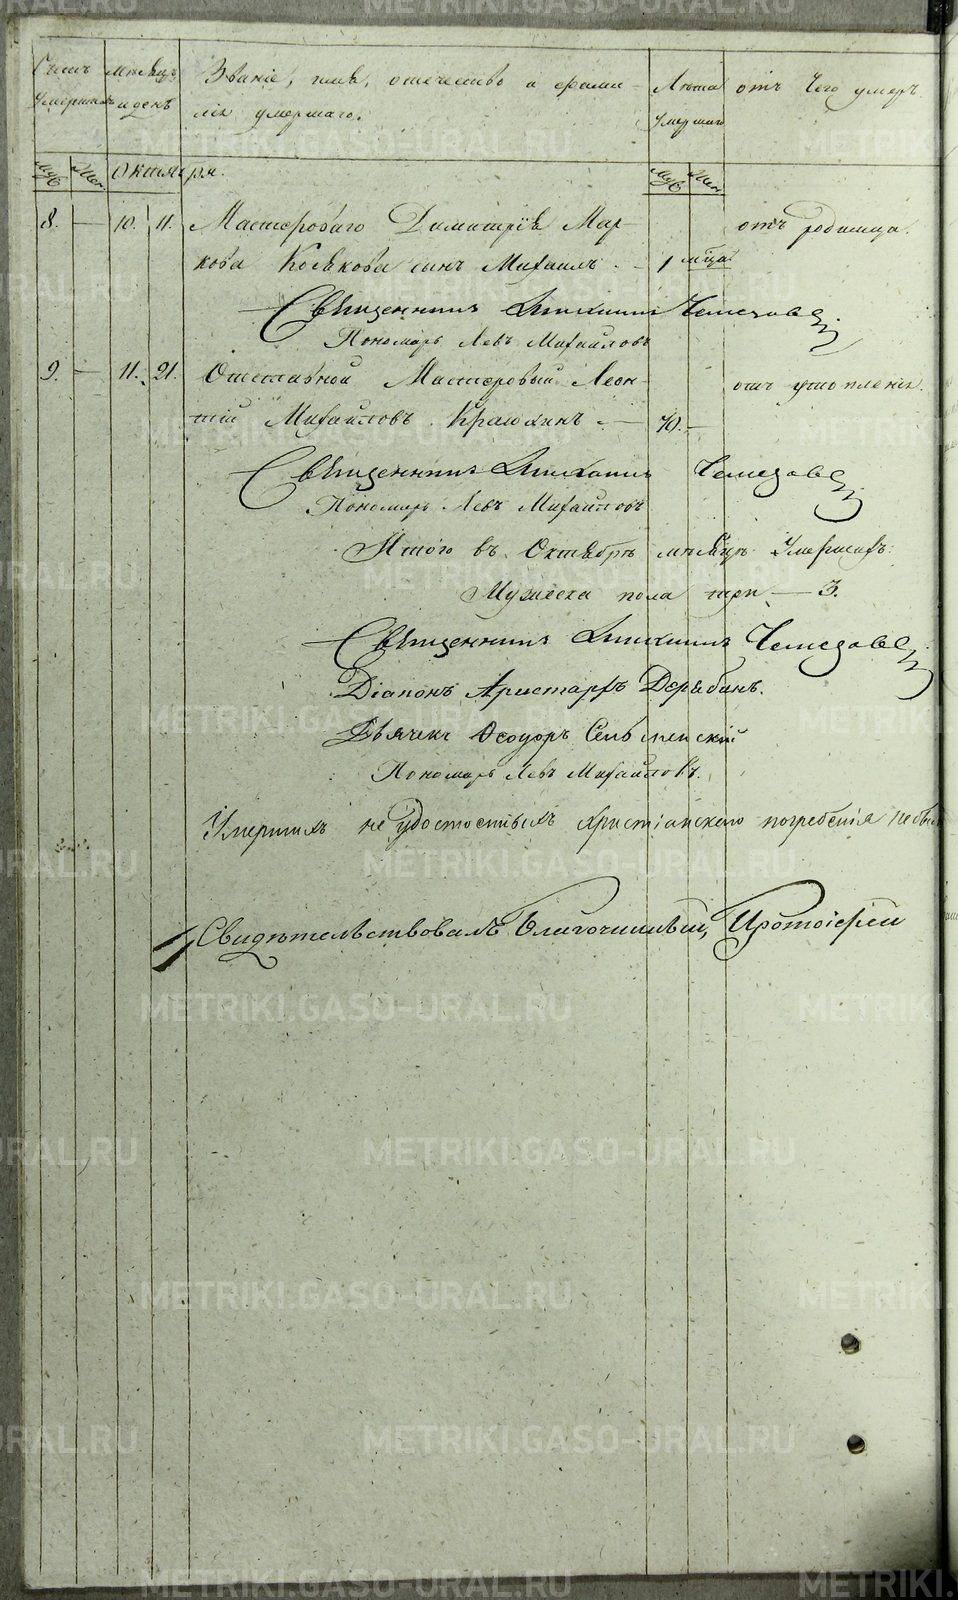 Счетъ умершихъ
Мѣсяцъ и день
Званіе, имя, отчество и фами-
лія умершаго.
Лѣта умершаго
отъ чего умеръ.
Муж Жен Октября. Муж Жен
8. — 10. 11. Мастероваго Димитрія Мар-
кова сынъ Михаилъ. — 1 мца отъ родимца.
Священникъ Чемезовъ
Пономарь Левъ Михайловъ
9. — 11. 21. Отставной Мастеровый Леон-
тій Михайловъ — 70. — отъ утопленія
Священникъ Чемезовъ
Пономарь Левъ Михайловъ
Итого въ Октябрѣ мѣсяцѣ Умершихъ:
Мужеска пола три — 3.
Священникъ Чемезовъ
Діаконъ Аристархъ Дерябинъ.
Дьячекъ Ѳеодоръ
Пономарь Левъ Михайловъ.
Умершихъ не удостоенныхъ христіанскаго погребенія не было
Свидѣтельствовалъ Благочинный, Протоіерей
METRIKI.GASO-URAL.RU